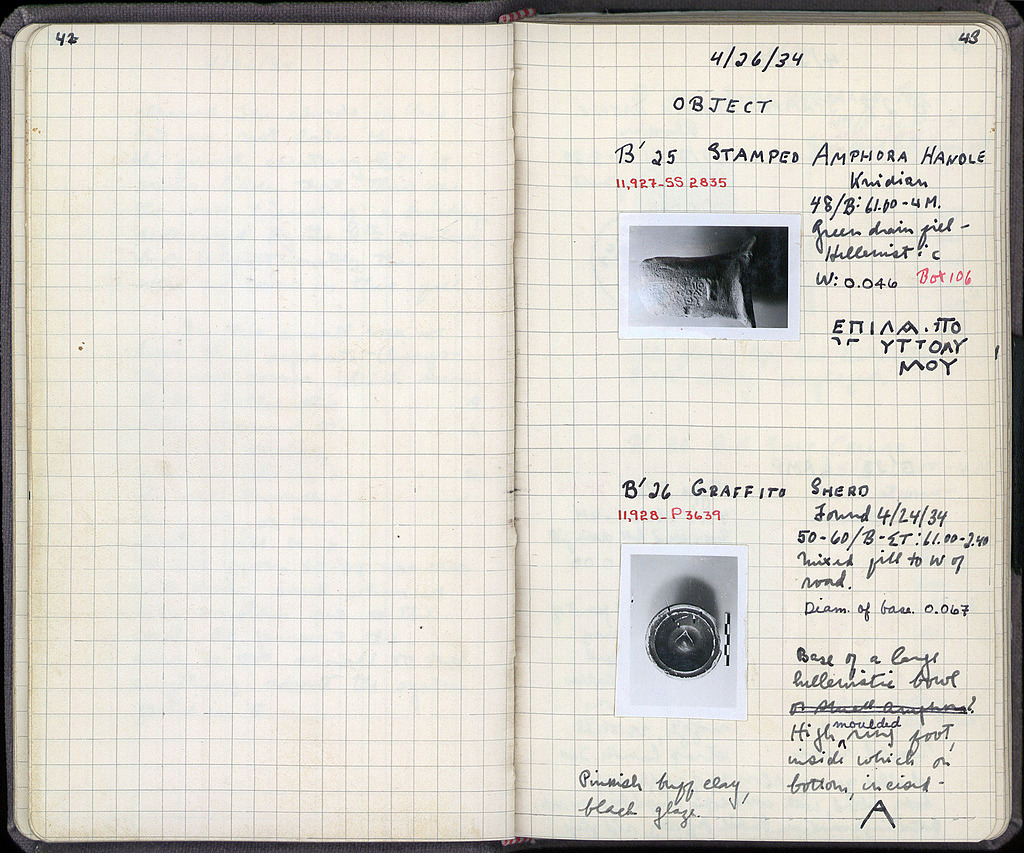 42
43
4/26/34
OBJECT
B' 25 STAMPED AMPHORA HANDLE
11,927-SS 2835
Knidian
48/B: 61.00-4 M.
Green drain fill -
Hellenistic
W: 0.046 Box 106
ΕΠΙΛΑ.ΠΟ
ΥΠΤΟΛΥ
ΜΟΥ
B' 26 GRAFFITO SHERD
11,928-P 3639
Found 4/24/34
50-60/B-ΣΤ: 61.00-2.40
Mixed fill to W of
road.
Diam. of base. 0.067
Base of a large
hellenistic bowl
or small amphora?
High moulded ring foot,
inside which on
bottom, incised -
Α
Pinkish buff clay,
black glaze.